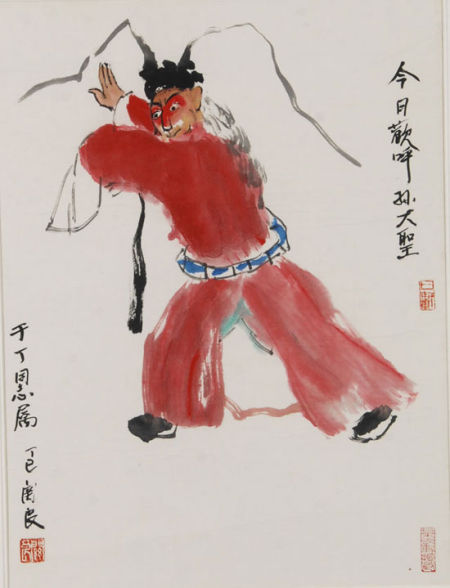 今日歡呼孫大聖
于丁同志属
丁巳 關良